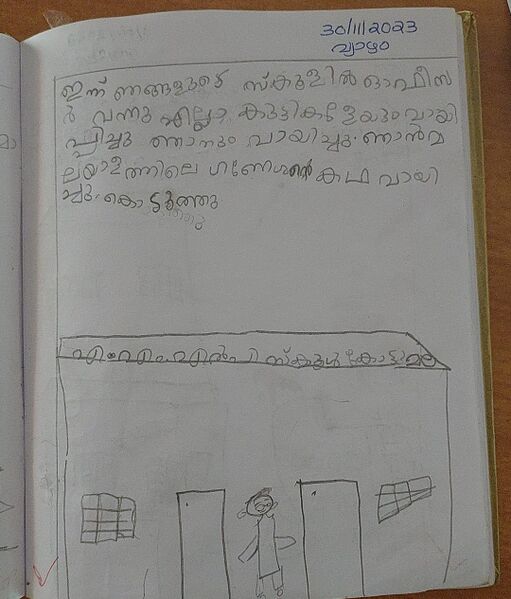 30/11/2023
വ്യാഴം
ഇന്ന് ഞങ്ങളുടെ സ്കൂളിൽ ഓഫീസ
ർ വന്നു എല്ലാ കുട്ടികളേയും വായി
പ്പിച്ചു ഞാനും വായിച്ചു. ഞാൻമ
ലയാളത്തിലെ ഗണേശൻ്റെ കഥ വായി
ച്ചു കൊടുത്തു
എ.എം.എൽ.പി സ്കൂൾ കോട്ടുമല